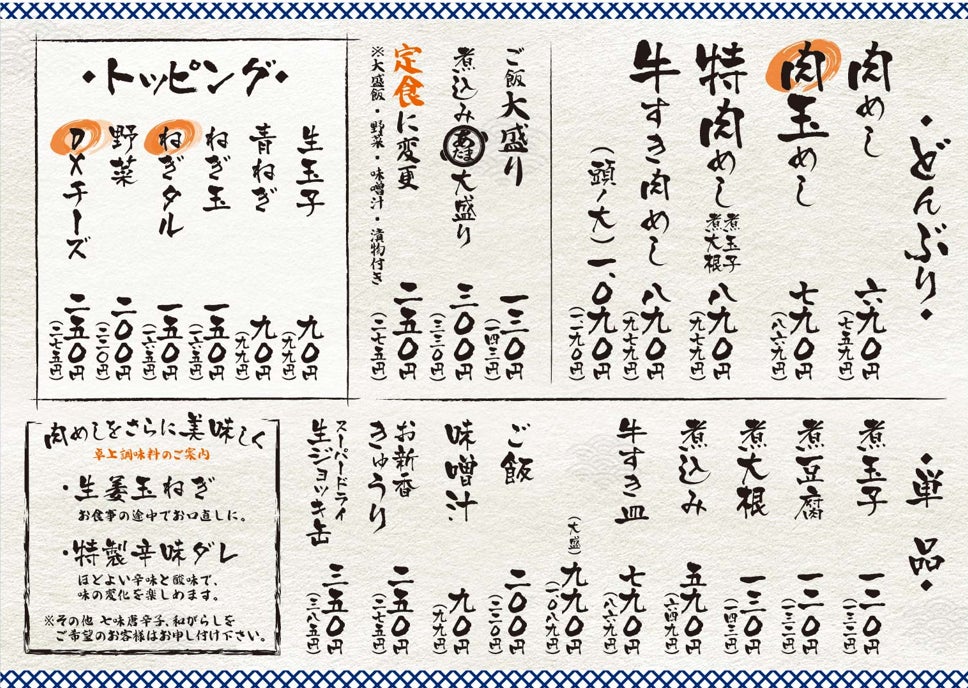 ・どんぶり・
肉めし 六九〇円
(七五九円)
肉玉めし 七九〇円
(八六九円)
特肉めし 煮玉子 煮大根 八九〇円
(九七九円)
牛すき肉めし 八九〇円
(九七九円)
(頭ノ大) 一、〇九〇円
(一一九九円)
ご飯大盛り 一三〇円
(一四三円)
煮込みあたま大盛り 三〇〇円
(三三〇円)
定食に変更 二五〇円
(二七五円)
※大盛飯・野菜・味噌汁・漬物付き
・トッピング・
生玉子 九〇円
(九九円)
青ねぎ 九〇円
(九九円)
ねぎ玉 一五〇円
(一六五円)
ねぎタル 一五〇円
(一六五円)
野菜 二〇〇円
(二二〇円)
DXチーズ 二五〇円
(二七五円)
・単品・
煮玉子 一二〇円
(一三二円)
煮豆腐 一二〇円
(一三二円)
煮大根 一三〇円
(一四三円)
煮込み 五九〇円
(六四九円)
牛すき皿 七九〇円
(八六九円)
(大盛) 九九〇円
(一〇八九円)
ご飯 二〇〇円
(二二〇円)
味噌汁 九〇円
(九九円)
お新香
きゅうり 二五〇円
(二七五円)
スーパードライ
生ジョッキ缶 三五〇円
(三八五円)
肉めしをさらに美味しく
卓上調味料のご案内
・生姜玉ねぎ
お食事の途中でお口直しに。
・特製辛味ダレ
ほどよい辛味と酸味で、
味の変化を楽しめます。
※その他 七味唐辛子、和がらしを
ご希望のお客様はお申し付け下さい。